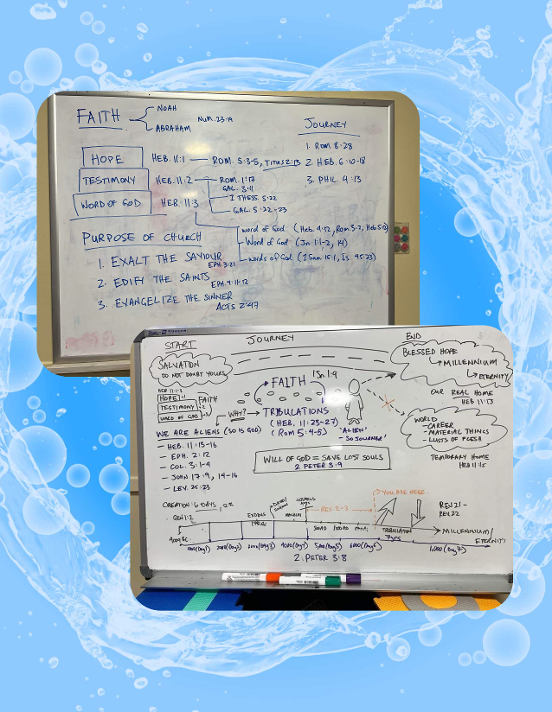 FAITH
NOAH
ABRAHAM
NUM. 23:19
JOURNEY
1. ROM. 8:28
2. HEB. 6:10-18
3. PHIL 4:13
HOPE HEB. 11:1 — ROM. 5:3-5, TITUS 2:13
TESTIMONY HEB. 11:2 — ROM. 1:17
GAL. 3:11
I THESS. 5:22
GAL. 5:22-23
WORD OF GOD HEB. 11:3
word of God (Heb. 4:12, Rom 3:2, Heb 5:12)
Word of God (Jn. 1:1-2, 14)
words of God (I Sam. 15:1, Is. 45:23)
PURPOSE OF CHURCH
1. EXALT THE SAVIOUR
EPH. 3:21
2. EDIFY THE SAINTS
EPH. 4:11-12
3. EVANGELIZE THE SINNER
ACTS 2:47
START
JOURNEY
END
SALVATION
DO NOT DOUBT YOURS
HEB 11:1-3
HOPE
TESTIMONY
WORD OF GOD
FAITH
FAITH
1 Jn. 1:9
WHY? → TRIBULATIONS
(HEB. 11:25-27)
(Rom 5:4-5)
"ALIEN"
- SOJOURNER
BLESSED HOPE
MILLENNIUM
ETERNITY
OUR REAL HOME
HEB 11:13
WORLD
- CAREER
- MATERIAL THINGS
- LUSTS OF FLESH
TEMPORARY HOME
HEB 11:15
WE ARE ALIENS (SO IS GOD)
- HEB. 11:13-16
- EPH. 2:12
- COL. 3:1-4
- JOHN 17:9, 14-16
- LEV. 25:23
WILL OF GOD = SAVE LOST SOULS
2 PETER 3:9
CREATION: 6 DAYS
GEN 1:2
EXODUS
REV. 2-3
YOU ARE HERE
REV 21-
REV 22
TRIBULATION
7yrs
MILLENNIUM/
ETERNITY
2 PETER 3:8